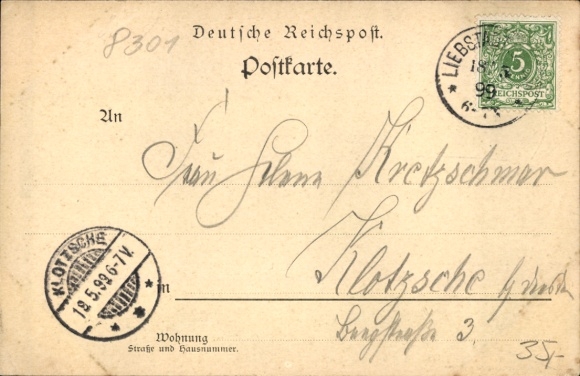 8301
Deutsche Reichspost.
Postkarte.
LIEBST
18 5
99
6-7
5
REICHSPOST
An
Frau Helene Kretzschmar
KLOTZSCHE
19.5.99.6-7V.
in Klotzsche b/ Dresden
Bergstraße 3.
Wohnung
Straße und Hausnummer.
35,-